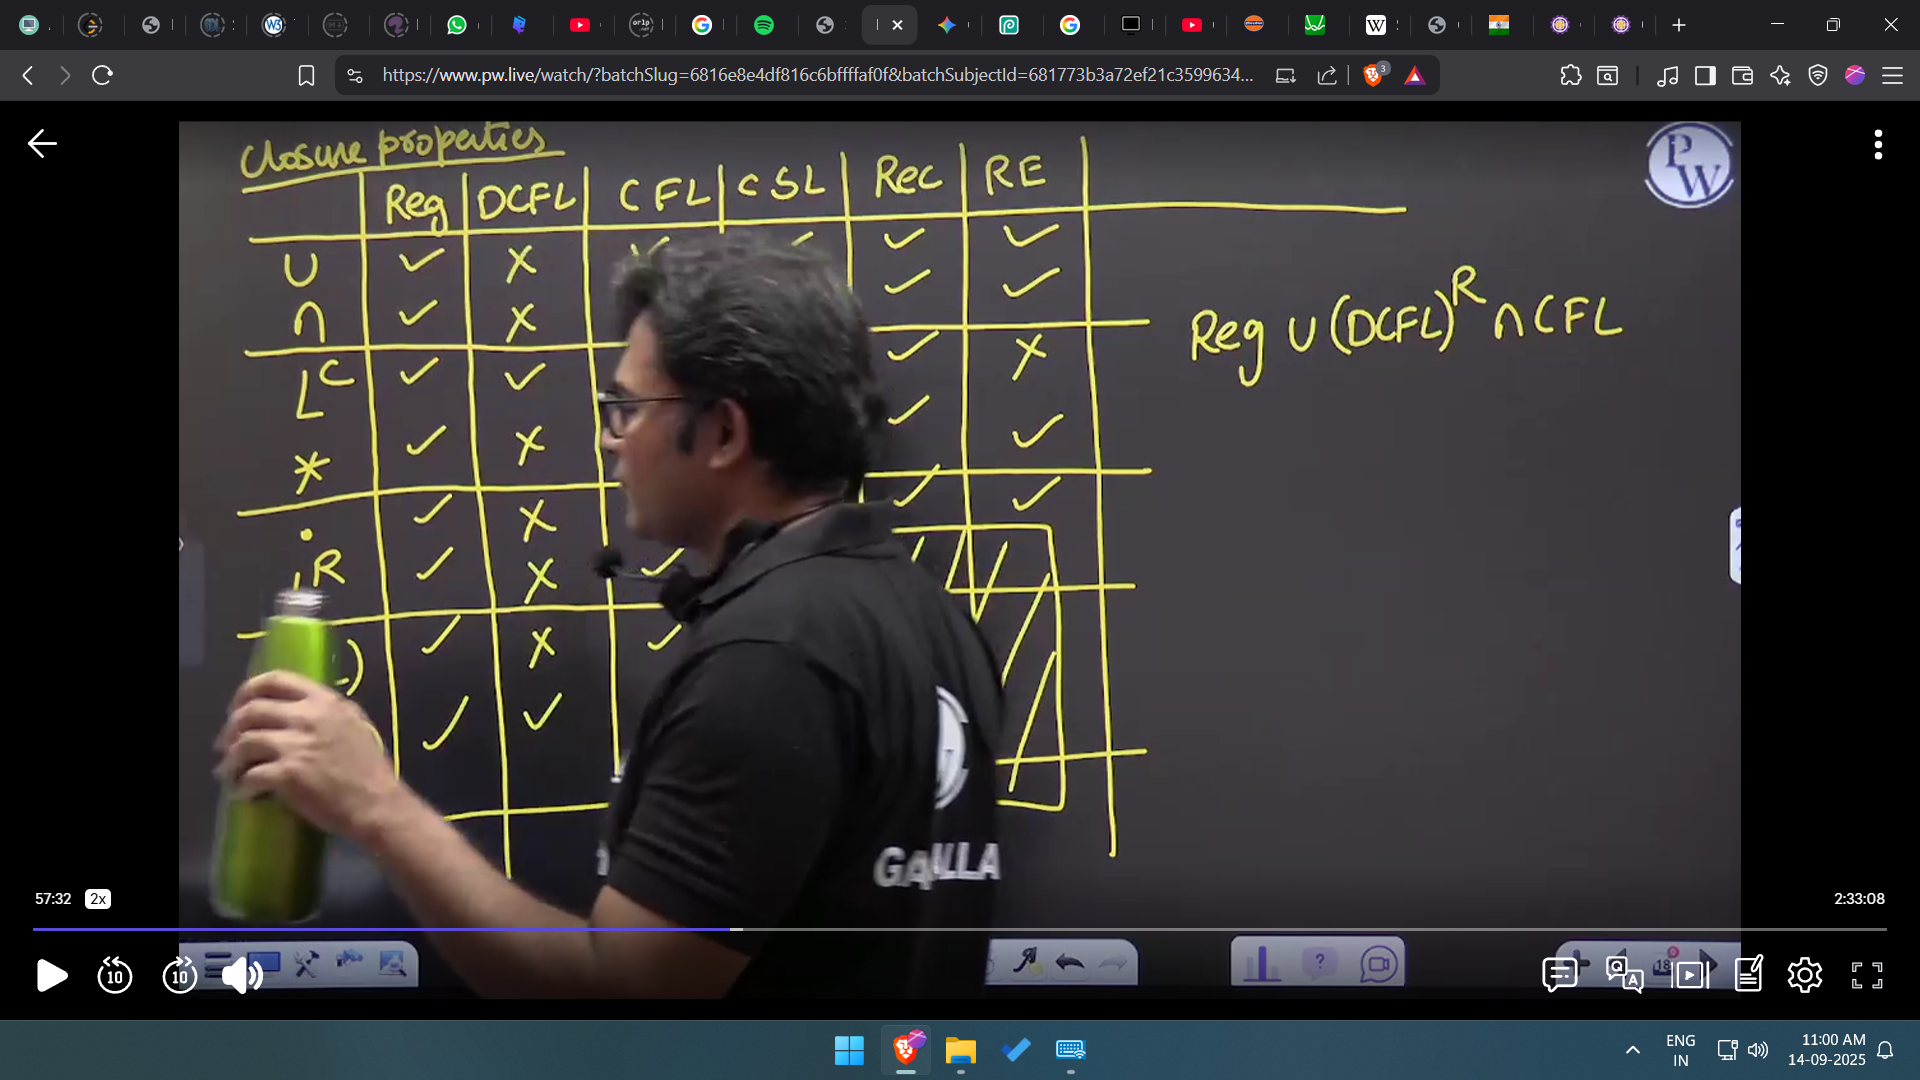 https://www.pw.live/watch/?batchSlug=6816e8e4df816c6bffffaf0f&batchSubjectId=681773b3a72ef21c3599634...
3
Closure properties
PW
Reg DCFL CFL CSL Rec RE
∪ ✓ ✗ ✓ ✓
∩ ✓ ✗ ✓ ✓
Reg ∪ (DCFL)^R ∩ CFL
L^C ✓ ✓ ✓ ✗
* ✓ ✗ ✓ ✓
. ✓ ✗ ✓ ✓
R ✓ ✗ ✓
✓ ✗ ✓
✓ ✓
57:32 2x
2:33:08
10 10
18
ENG
IN
11:00 AM
14-09-2025